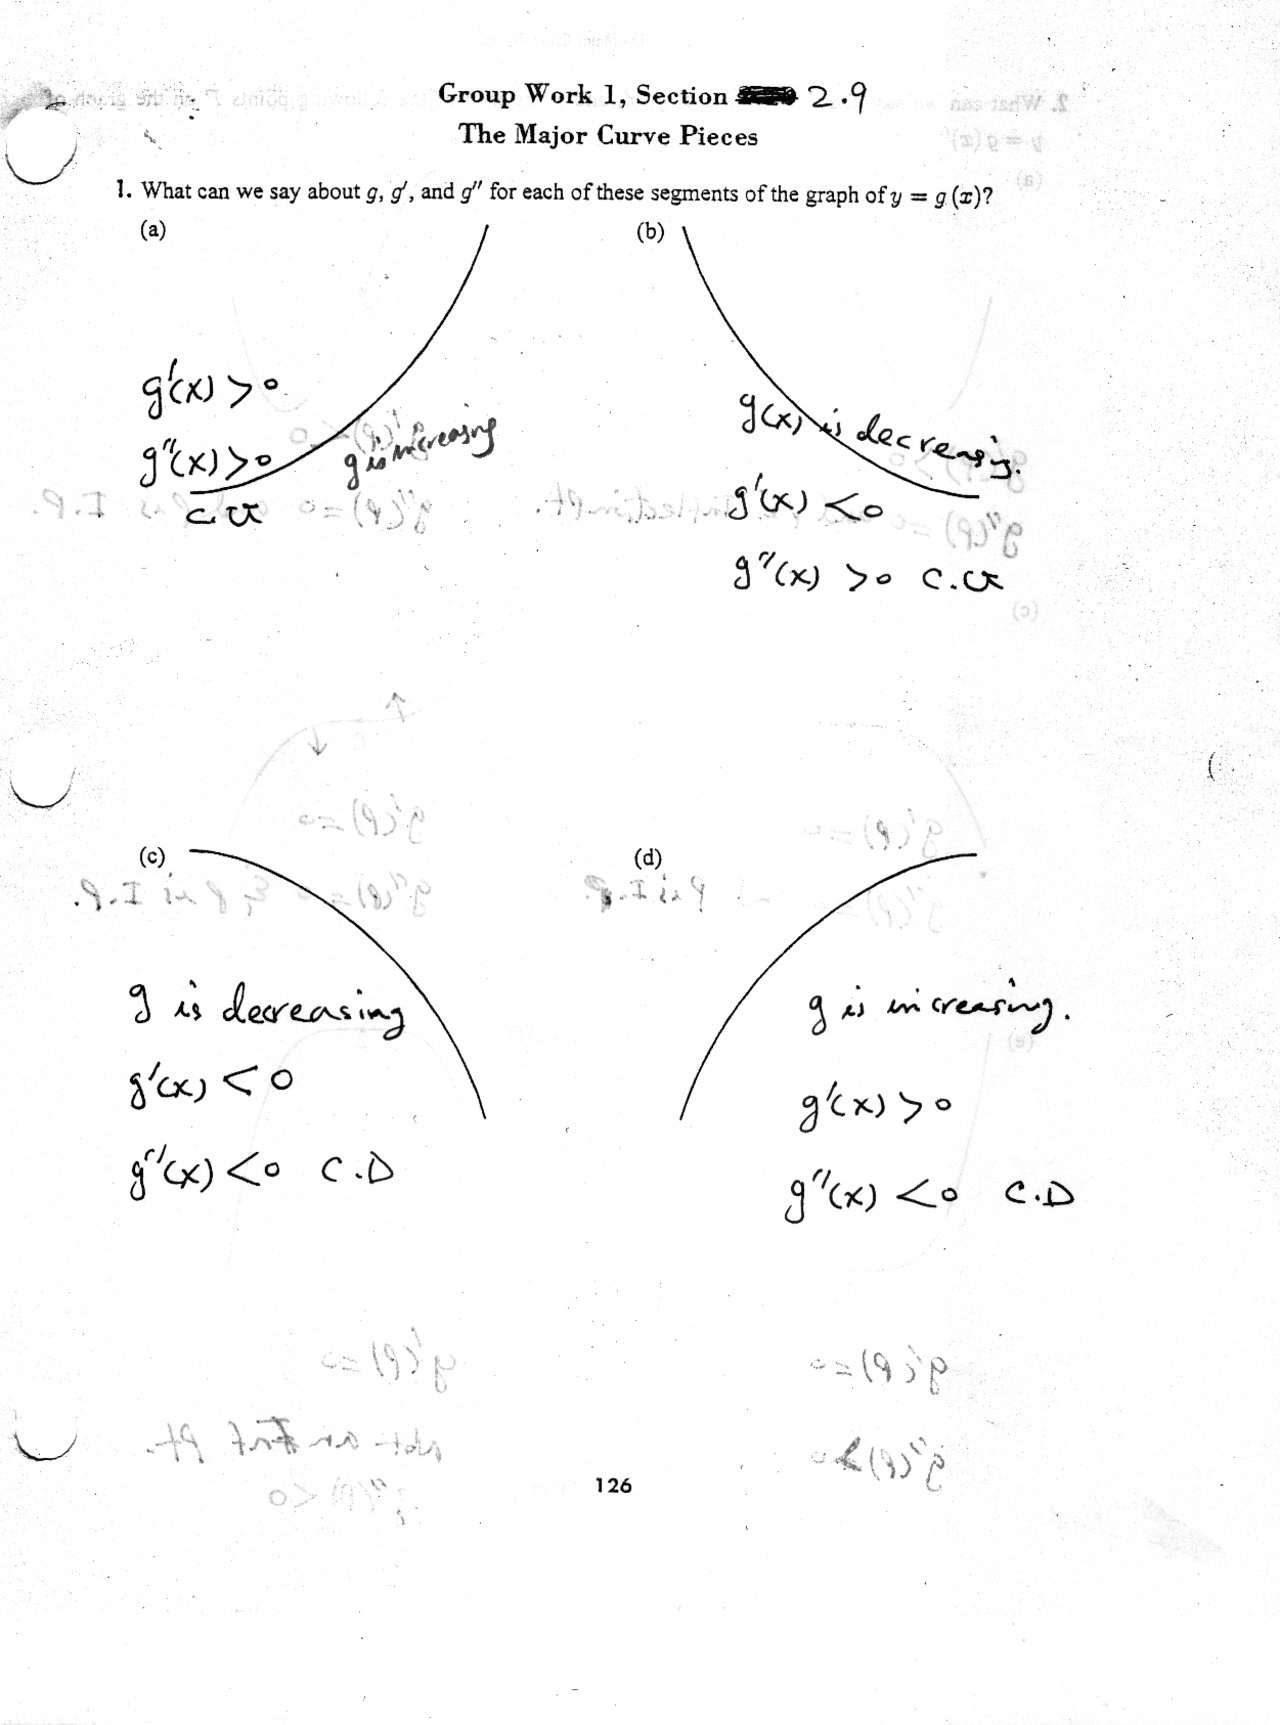 Group Work 1, Section 2.9
The Major Curve Pieces
1. What can we say about g, g′, and g″ for each of these segments of the graph of y = g (x)?
(a)
g'(x) > 0
g''(x) > 0
C.U
g is increasing
(b)
g(x) is decreasing.
g'(x) < 0
g''(x) > 0 C.U
(c)
g is decreasing
g'(x) < 0
g''(x) < 0 C.D
(d)
g is increasing.
g'(x) > 0
g''(x) < 0 C.D
126